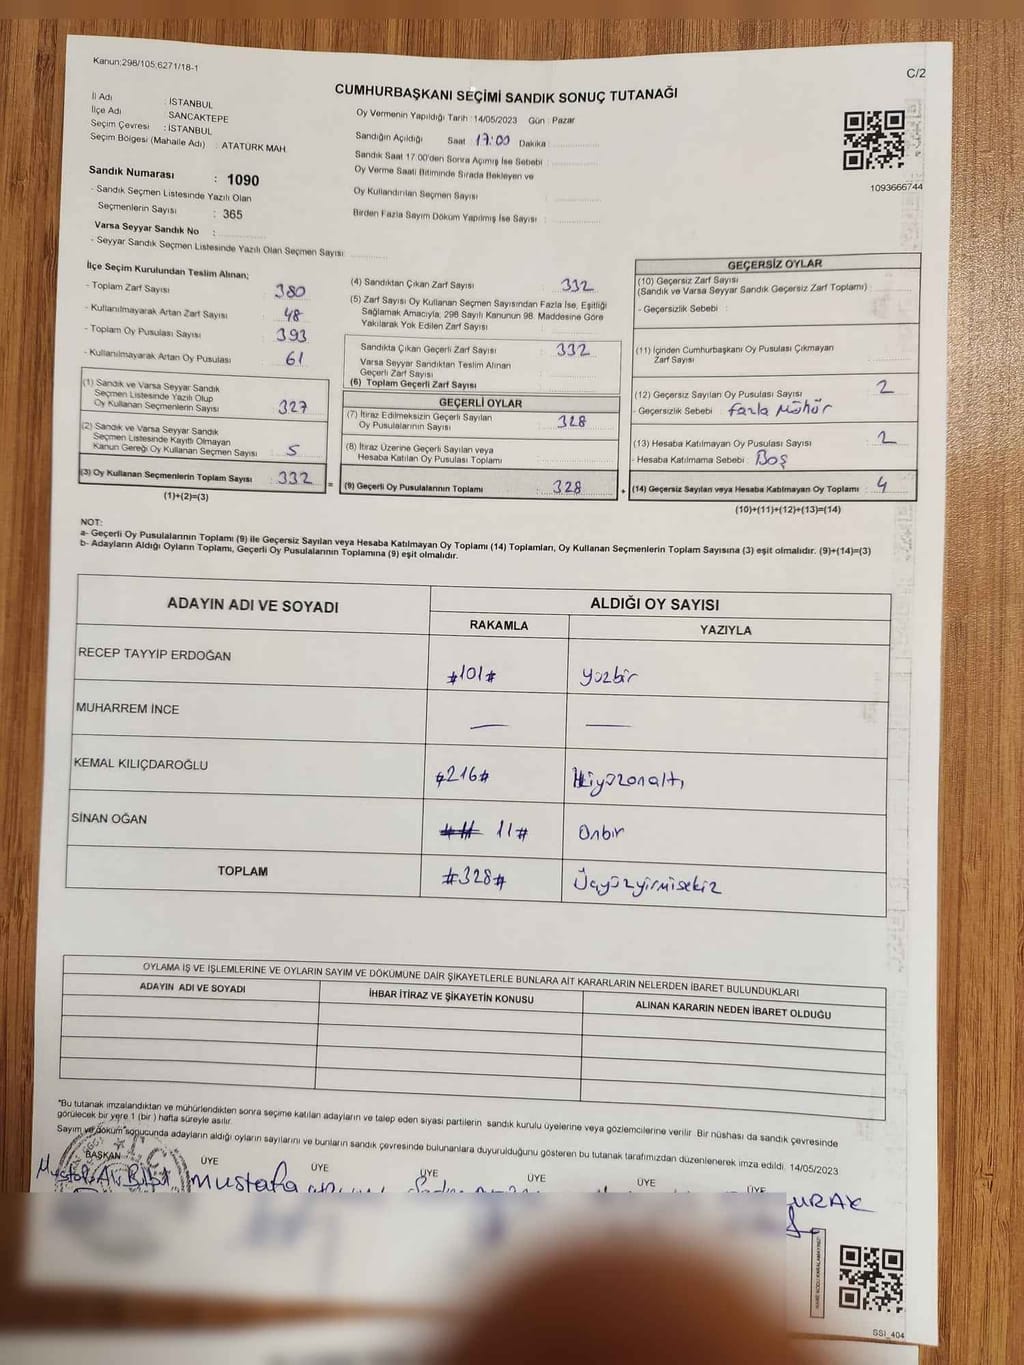 Kanun:298/105;6271/18-1
C/2
CUMHURBAŞKANI SEÇİMİ SANDIK SONUÇ TUTANAĞI
İl Adı : İSTANBUL
İlçe Adı : SANCAKTEPE
Seçim Çevresi : İSTANBUL
Seçim Bölgesi (Mahalle Adı) : ATATÜRK MAH.
Sandık Numarası : 1090
- Sandık Seçmen Listesinde Yazılı Olan
Seçmenlerin Sayısı : 365
Varsa Seyyar Sandık No :
- Seyyar Sandık Seçmen Listesinde Yazılı Olan Seçmen Sayısı
Oy Vermenin Yapıldığı Tarih : 14/05/2023 Gün : Pazar
Sandığın Açıldığı Saat : 17:00 Dakika :
Sandık Saat 17.00'den Sonra Açımış İse Sebebi :
Oy Verme Saati Bitiminde Sırada Bekleyen ve
Oy Kullandırılan Seçmen Sayısı :
Birden Fazla Sayım Döküm Yapılmış İse Sayısı :
1093666744
İlçe Seçim Kurulundan Teslim Alınan;
- Toplam Zarf Sayısı : 380
- Kullanılmayarak Artan Zarf Sayısı : 48
- Toplam Oy Pusulası Sayısı : 393
- Kullanılmayarak Artan Oy Pusulası : 61
(1) Sandık ve Varsa Seyyar Sandık
Seçmen Listesinde Yazılı Olup
Oy Kullanan Seçmenlerin Sayısı : 327
(2) Sandık ve Varsa Seyyar Sandık
Seçmen Listesinde Kayıtlı Olmayan
Kanun Gereği Oy Kullanan Seçmen Sayısı : 5
(3) Oy Kullanan Seçmenlerin Toplam Sayısı : 332
(1)+(2)=(3)
(4) Sandıktan Çıkan Zarf Sayısı : 332
(5) Zarf Sayısı Oy Kullanan Seçmen Sayısından Fazla İse, Eşitliği
Sağlamak Amacıyla, 298 Sayılı Kanunun 98. Maddesine Göre
Yakılarak Yok Edilen Zarf Sayısı :
Sandıkta Çıkan Geçerli Zarf Sayısı : 332
Varsa Seyyar Sandıktan Teslim Alınan
Geçerli Zarf Sayısı :
(6) Toplam Geçerli Zarf Sayısı :
GEÇERLİ OYLAR
(7) İtiraz Edilmeksizin Geçerli Sayılan
Oy Pusulalarının Sayısı : 328
(8) İtiraz Üzerine Geçerli Sayılan veya
Hesaba Katılan Oy Pusulası Toplamı :
= (9) Geçerli Oy Pusulalarının Toplamı : 328
GEÇERSİZ OYLAR
(10) Geçersiz Zarf Sayısı
(Sandık ve Varsa Seyyar Sandık Geçersiz Zarf Toplamı) :
- Geçersizlik Sebebi :
(11) İçinden Cumhurbaşkanı Oy Pusulası Çıkmayan
Zarf Sayısı :
(12) Geçersiz Sayılan Oy Pusulası Sayısı : 2
- Geçersizlik Sebebi : Fazla Mühür
(13) Hesaba Katılmayan Oy Pusulası Sayısı : 2
- Hesaba Katılmama Sebebi : Boş
+ (14) Geçersiz Sayılan veya Hesaba Katılmayan Oy Toplamı : 4
(10)+(11)+(12)+(13)=(14)
NOT:
a- Geçerli Oy Pusulalarının Toplamı (9) ile Geçersiz Sayılan veya Hesaba Katılmayan Oy Toplamı (14) Toplamları, Oy Kullanan Seçmenlerin Toplam Sayısına (3) eşit olmalıdır. (9)+(14)=(3)
b- Adayların Aldığı Oyların Toplamı, Geçerli Oy Pusulalarının Toplamına (9) eşit olmalıdır.
ADAYIN ADI VE SOYADI
ALDIĞI OY SAYISI
RAKAMLA YAZIYLA
RECEP TAYYİP ERDOĞAN #101# yüzbir
MUHARREM İNCE — —
KEMAL KILIÇDAROĞLU #216# İkiyüzonaltı
SİNAN OĞAN 11# Onbir
TOPLAM #328# Üçyüzyirmisekiz
OYLAMA İŞ VE İŞLEMLERİNE VE OYLARIN SAYIM VE DÖKÜMÜNE DAİR ŞİKAYETLERLE BUNLARA AİT KARARLARIN NELERDEN İBARET BULUNDUKLARI
ADAYIN ADI VE SOYADI İHBAR İTİRAZ VE ŞİKAYETİN KONUSU ALINAN KARARIN NEDEN İBARET OLDUĞU
*Bu tutanak imzalandıktan ve mühürlendikten sonra seçime katılan adayların ve talep eden siyasi partilerin sandık kurulu üyelerine veya gözlemcilerine verilir. Bir nüshası da sandık çevresinde
görülecek bir yere 1 (bir ) hafta süreyle asılır.
Sayım ve döküm sonucunda adayların aldığı oyların sayılarını ve bunların sandık çevresinde bulunanlara duyurulduğunu gösteren bu tutanak tarafımızdan düzenlenerek imza edildi. 14/05/2023
BAŞKAN ÜYE ÜYE ÜYE ÜYE ÜYE ÜYE
mustafa
SSI_404